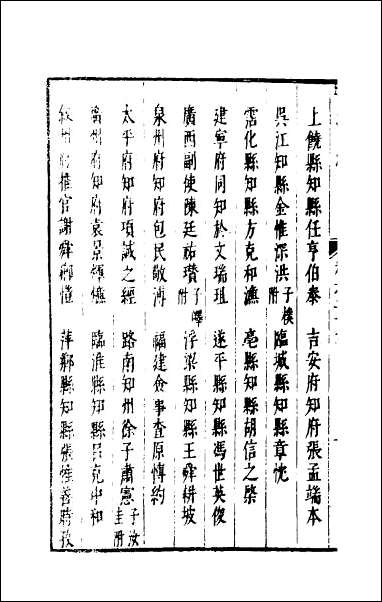 上饒縣知縣任亨伯泰　吉安府知府張孟端本
吳江知縣金惟深洪子樸附　臨城縣知縣章忱
霑化縣知縣方克和漁　亳縣知縣胡信之榮
建寧府同知於文瑞珇　遂平縣知縣馮世英俊
廣西副使陳廷祐瓚子嶧附　浮梁縣知縣王舜耕坡
泉州府知府包民敬溥　福建僉事查原愽約
太平府知府項誠之經　路南知州徐子肅憲子汝圭附
州府知府袁景輝　臨淮縣知縣呂克中和
州府推官謝舜卿　萍鄉縣知縣張惟善時孜